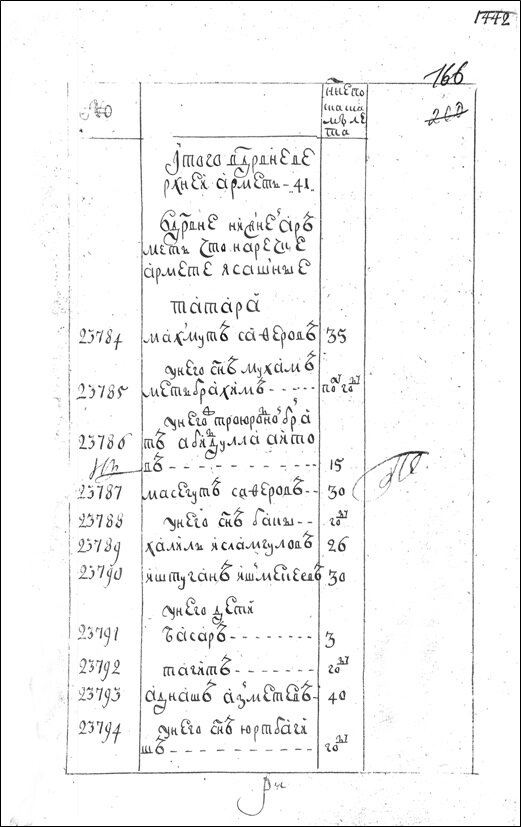 1442
166
200
№
ннепо
шаша
мъ ле
та
итого вдрвне ве
рхней арметь - 41
вдрвне нижне аръ
меть что на речке
армете ясашные
татара
23784 махмутъ саферовъ 35
у него снъ мухамъ
23785 метьбрахимъ - - - - - полгоу
у него троюродной бра
23786 тъ абдулла аито
въ - - - - - - - - - 15
23787 масегутъ саферовъ - - 30
23788 у него снъ баны - - го
23789 халиль исламгуловъ 26
23790 иштуганъ яшмейеевъ 30
у него дети
23791 ъасаръ - - - - - - - - 3
23792 тагитъ - - - - - - - го
23793 аднашъ азметевъ - 40
23794 у него снъ юртбаги
шъ - - - - - - - - - го